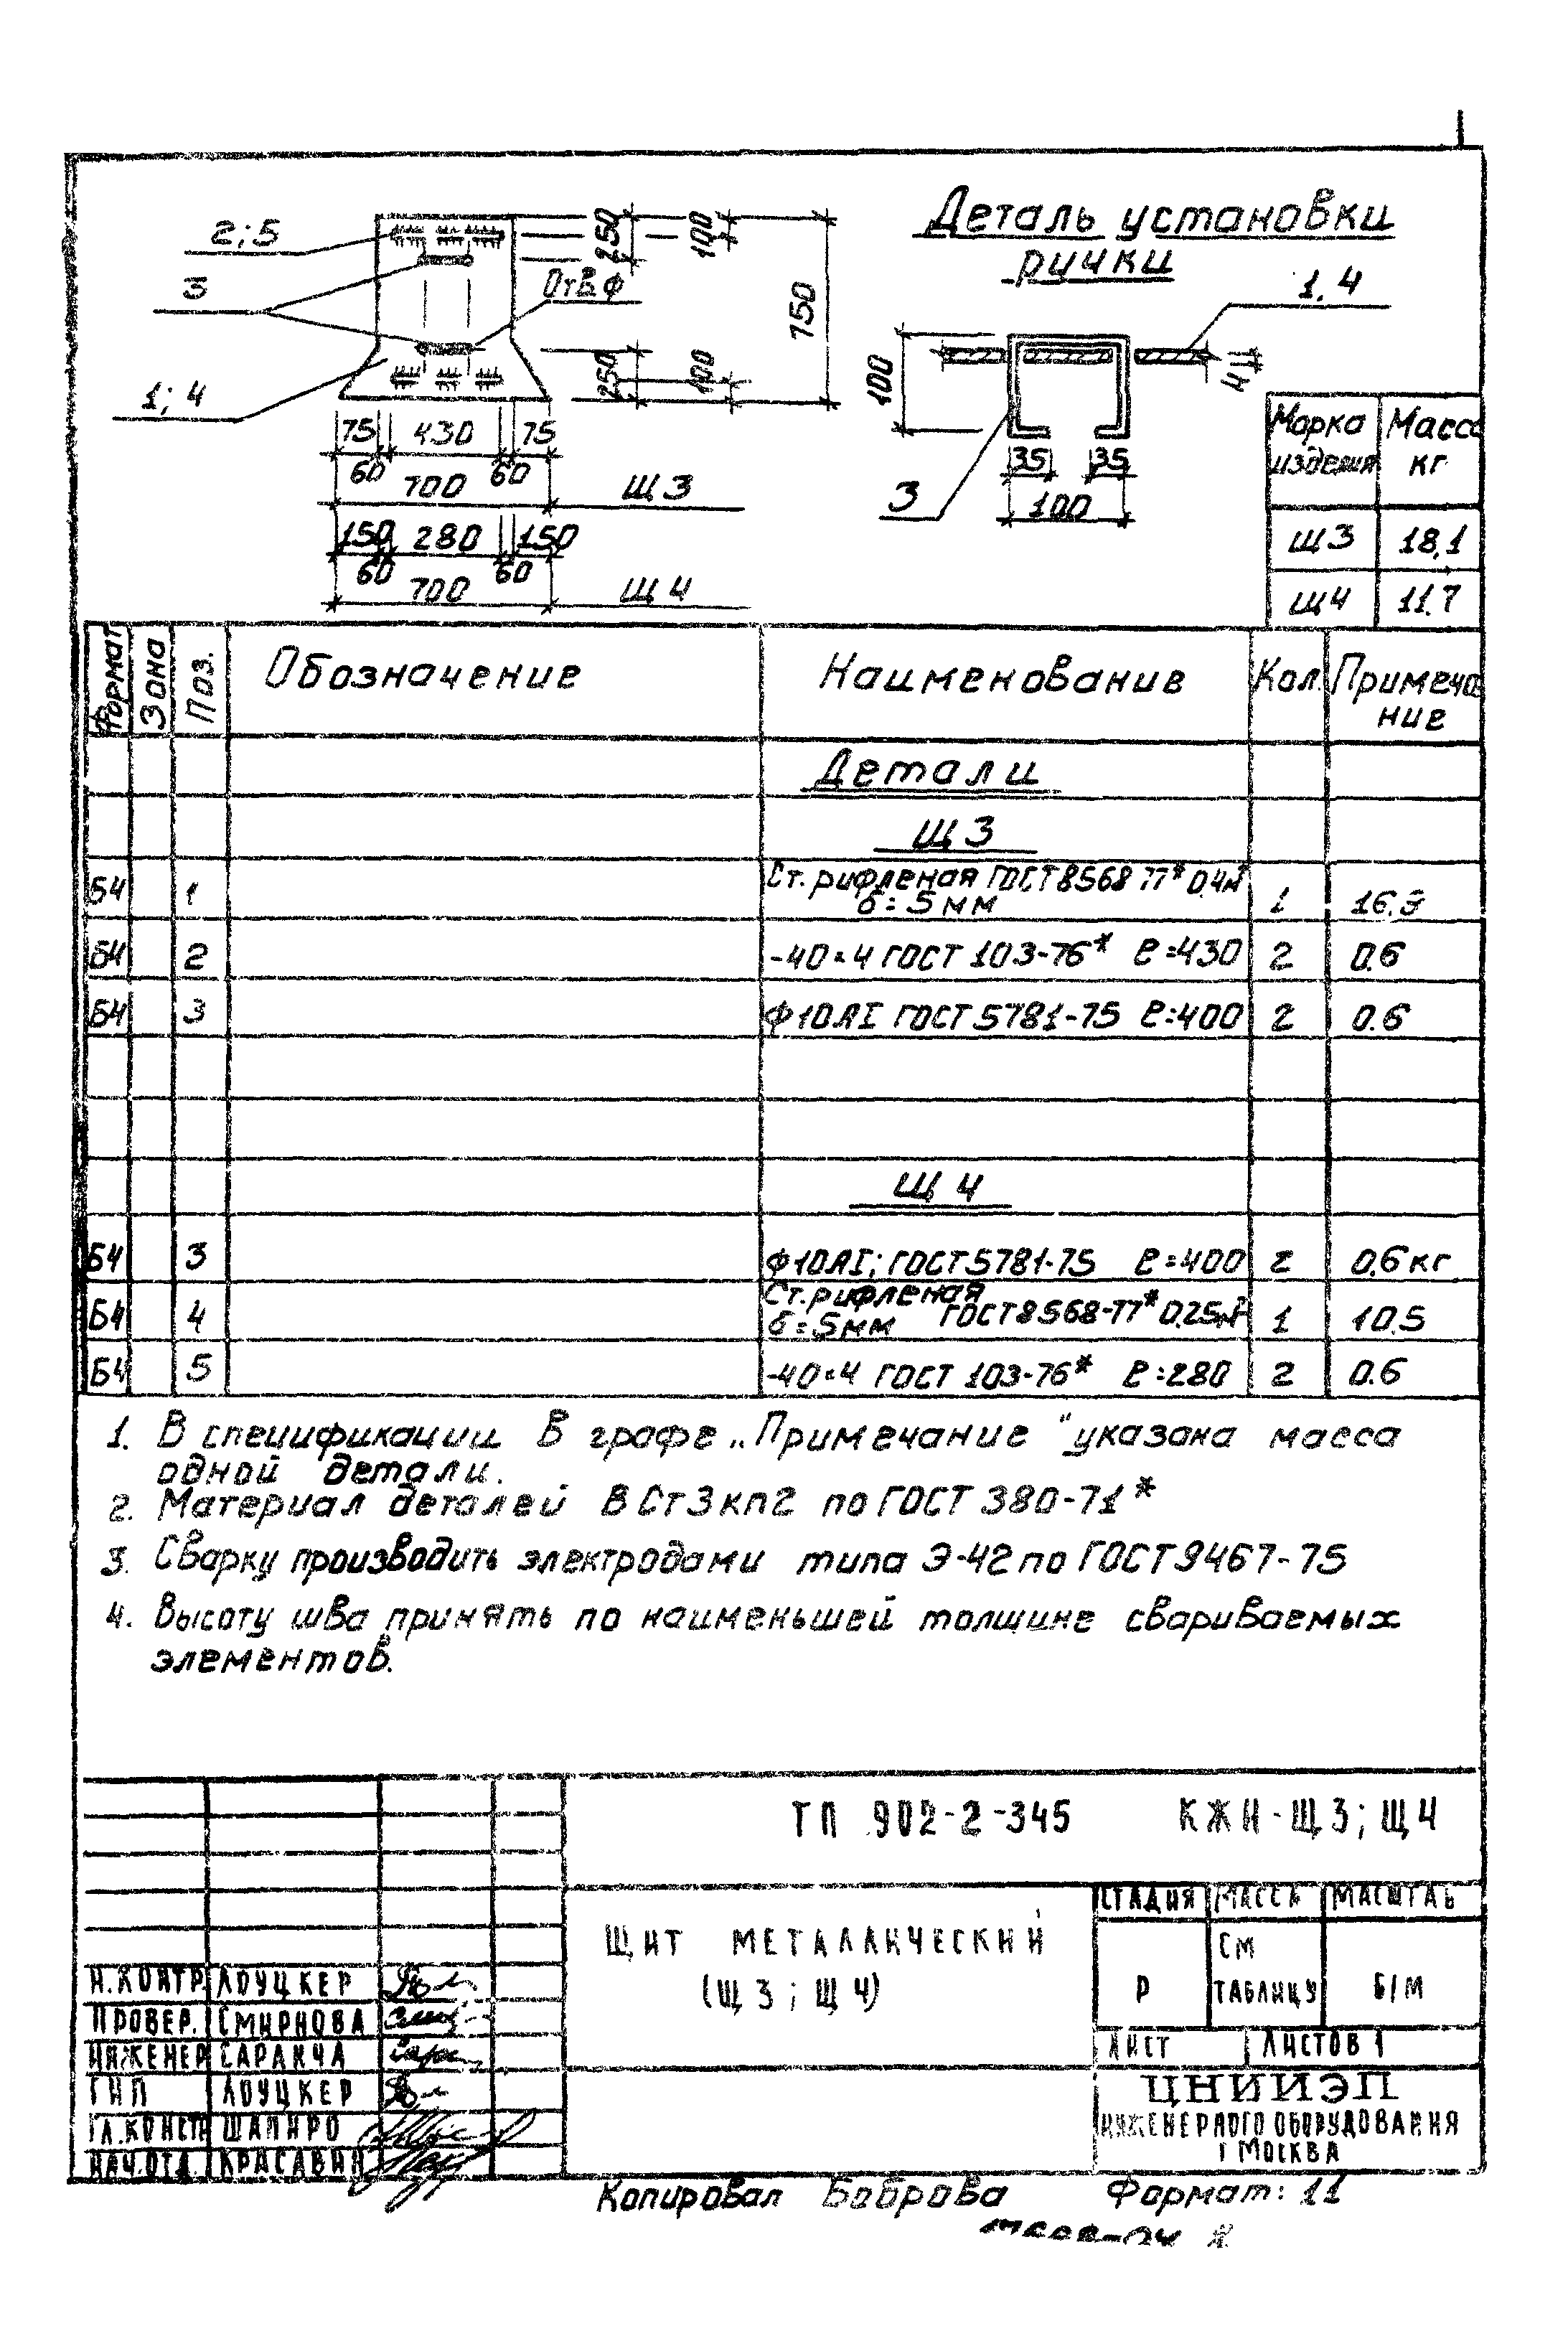 2;5
3
1; 4
Отв.ф
250
100
250
100
750
75 430 75
60 60
700 Щ3
150 280 150
60 60
700 Щ4
Деталь установки
ручки
1,4
100
4
3
35 35
100
Марка изделия Масса кг
Щ3 18,1
Щ4 11.7
Формат Зона Поз. Обозначение Наименование Кол. Примеча
ние
Детали
Щ3
БЧ 1 Ст. рифленая ГОСТ 8568 77* 0,4м²
δ=5мм 1
БЧ 2 -40×4 ГОСТ 103-76* ℓ=430 2 0.6
БЧ 3 ф10АI ГОСТ 5781-75 ℓ=400 2 0.6
Щ4
БЧ 3 ф10АI; ГОСТ 5781-75 ℓ=400 2 0.6кг
БЧ 4 Ст. рифленая
δ=5мм ГОСТ 8568-77* 0.25м² 1 10.5
БЧ 5 -40×4 ГОСТ 103-76* ℓ=280 2 0.6
1. В спецификации в графе „Примечание" указана масса
одной детали.
2. Материал деталей ВСт3кп2 по ГОСТ 380-71*
3. Сварку производить электродами типа Э-42 по ГОСТ 9467-75
4. Высоту шва принять по наименьшей толщине свариваемых
элементов.
ТП 902-2-345 КЖИ-Щ3; Щ4
ЩИТ МЕТАЛЛИЧЕСКИЙ
(Щ3; Щ4)
СТАДИЯ МАССА МАСШТАБ
Р СМ ТАБЛИЦУ Б/М
ЛИСТ ЛИСТОВ 1
ЦНИИЭП
ИНЖЕНЕРНОГО ОБОРУДОВАНИЯ
Г МОСКВА
Н.КОНТР. ЛОУЦКЕР
ПРОВЕР. СМИРНОВА
ИНЖЕНЕР САРАКЧА
ГИП ЛОУЦКЕР
ГЛ.КОНСТР ШАПИРО
НАЧ.ОТД КРАСАВИН
Копировал Боброва Формат: 11